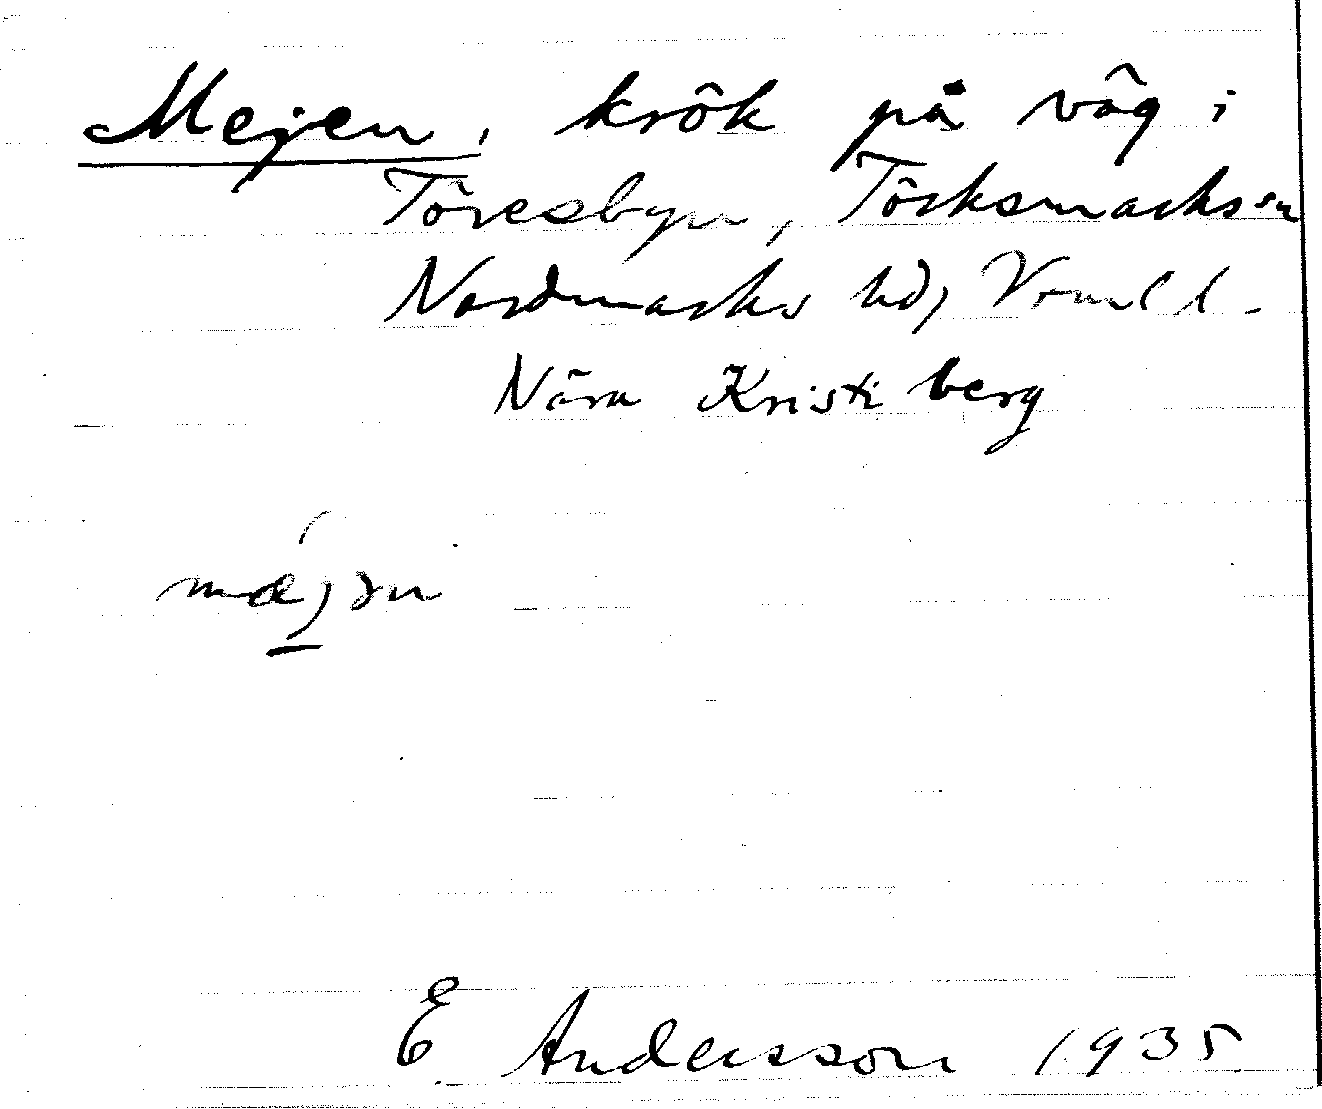 Mejen, krök på väg i
Töresbyn, Töcksmarks sn
Nordmarks hd, Värml l.
Nära Kristi berg
mæjən
E Andersson 1935